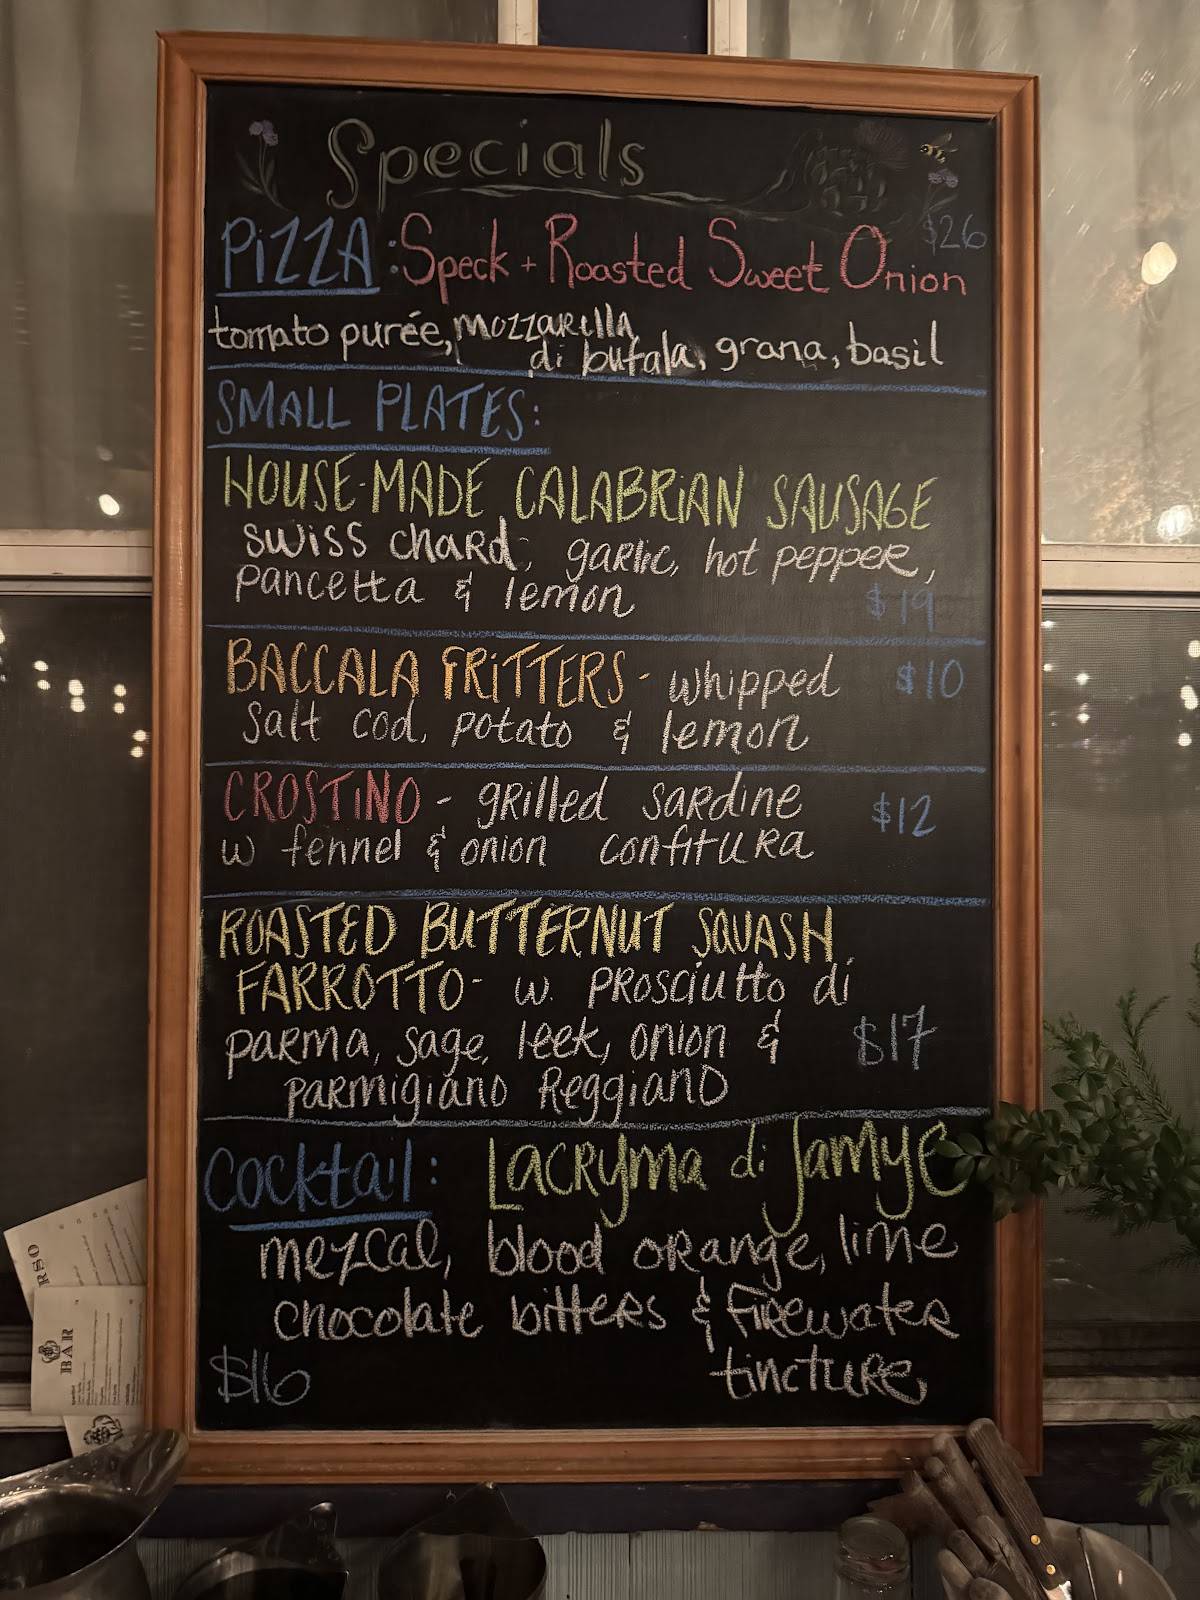 Specials
$26
PiZZA: Speck + Roasted Sweet Onion
tomato purée, mozzarella
di bufala, grana, basil
SMALL PLATES:
HOUSE-MADE CALABRiAN SAUSAGE
swiss chard, garlic, hot pepper,
pancetta & lemon
$19
BACCALA FRiTTERS - whipped $10
salt cod, potato & lemon
CROSTiNO - grilled sardine $12
w fennel & onion confitura
ROASTED BUTTERNUT SQUASH
FARROTTO - w. prosciutto di
parma, sage, leek, onion & $17
parmigiano Reggiano
Cocktail: Lacryma di Jamye
mezcal, blood orange, lime
chocolate bitters & firewater
$16 tincture
BAR